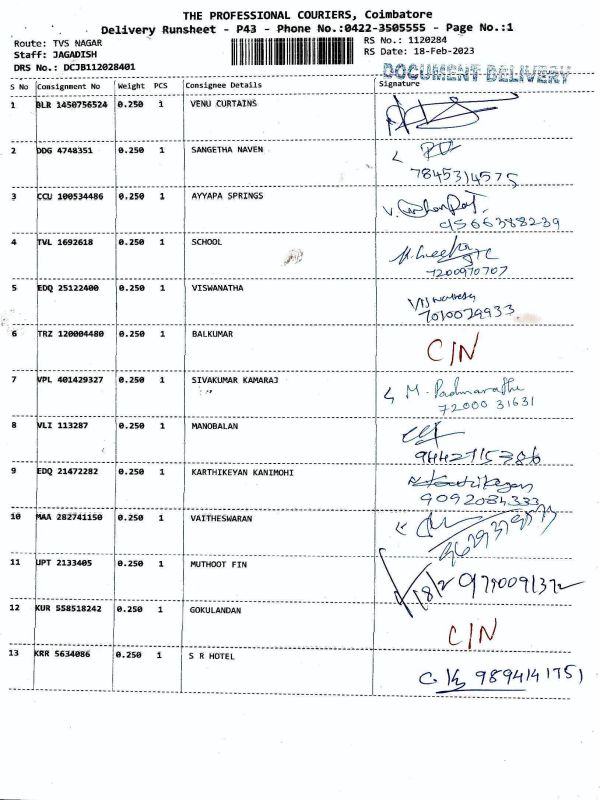 THE PROFESSIONAL COURIERS, Coimbatore
Delivery Runsheet - P43 - Phone No.:0422-3505555 - Page No.:1
Route: TVS NAGAR
Staff: JAGADISH
DRS No.: DCJB112028401
RS No.: 1120284
RS Date: 18-Feb-2023
DOCUMENT DELIVERY
S No Consignment No Weight PCS Consignee Details Signature
1 BLR 1450756524 0.250 1 VENU CURTAINS
2 DDG 4748351 0.250 1 SANGETHA NAVEN
7845314575
3 CCU 100534486 0.250 1 AYYAPA SPRINGS
9566388239
4 TVL 1692618 0.250 1 SCHOOL
7200970707
5 EDQ 25122400 0.250 1 VISWANATHA
7010079933
6 TRZ 120004480 0.250 1 BALKUMAR C/N
7 VPL 401429327 0.250 1 SIVAKUMAR KAMARAJ M. Padmavathi
72000 31631
8 VLI 113287 0.250 1 MANOBALAN
9442715386
9 EDQ 21472282 0.250 1 KARTHIKEYAN KANIMOHI
9092084333
10 MAA 282741150 0.250 1 VAITHESWARAN
11 UPT 2133405 0.250 1 MUTHOOT FIN
12 KUR 558518242 0.250 1 GOKULANDAN C/N
13 KRR 5634086 0.250 1 S R HOTEL 9894141751